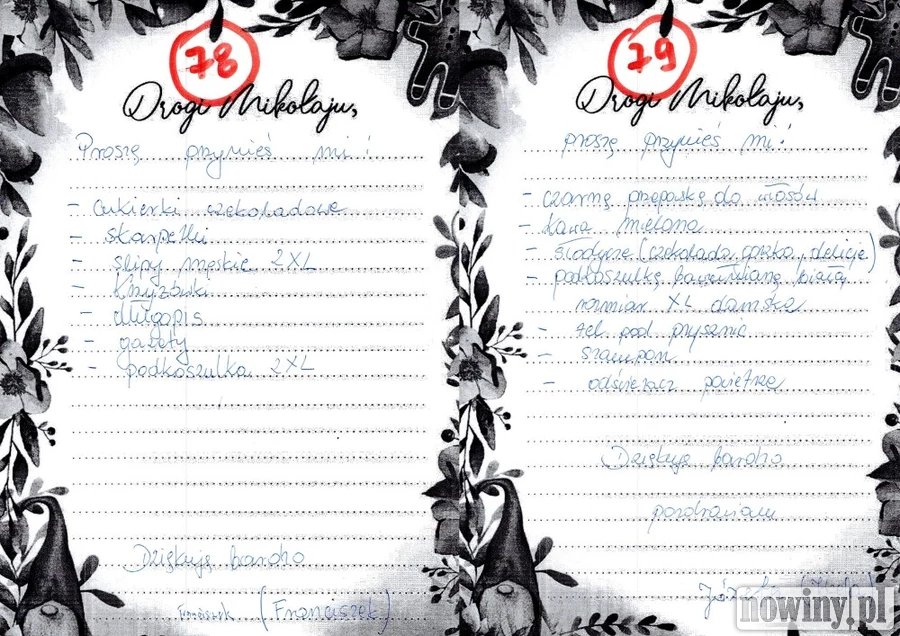 78
Drogi Mikołaju,
Proszę przynieś mi!
- cukierki czekoladowe
- skarpetki
- slipy męskie 2XL
- krzyżówki
- długopis
- gazety
- podkoszulka 2XL
Dziękuję bardzo
Franciszek (Franciszek)
79
Drogi Mikołaju,
proszę przynieś mi!
- czarną przepaskę do włosów
- kawa mielona
- słodycze (czekolada gorzka, delicje)
- podkoszulkę bawełnianą białą
rozmiar XL damska
- żel pod prysznic
- szampon
- odświeżacz powietrza
Dziękuję bardzo
pozdrawiam
nowiny.pl